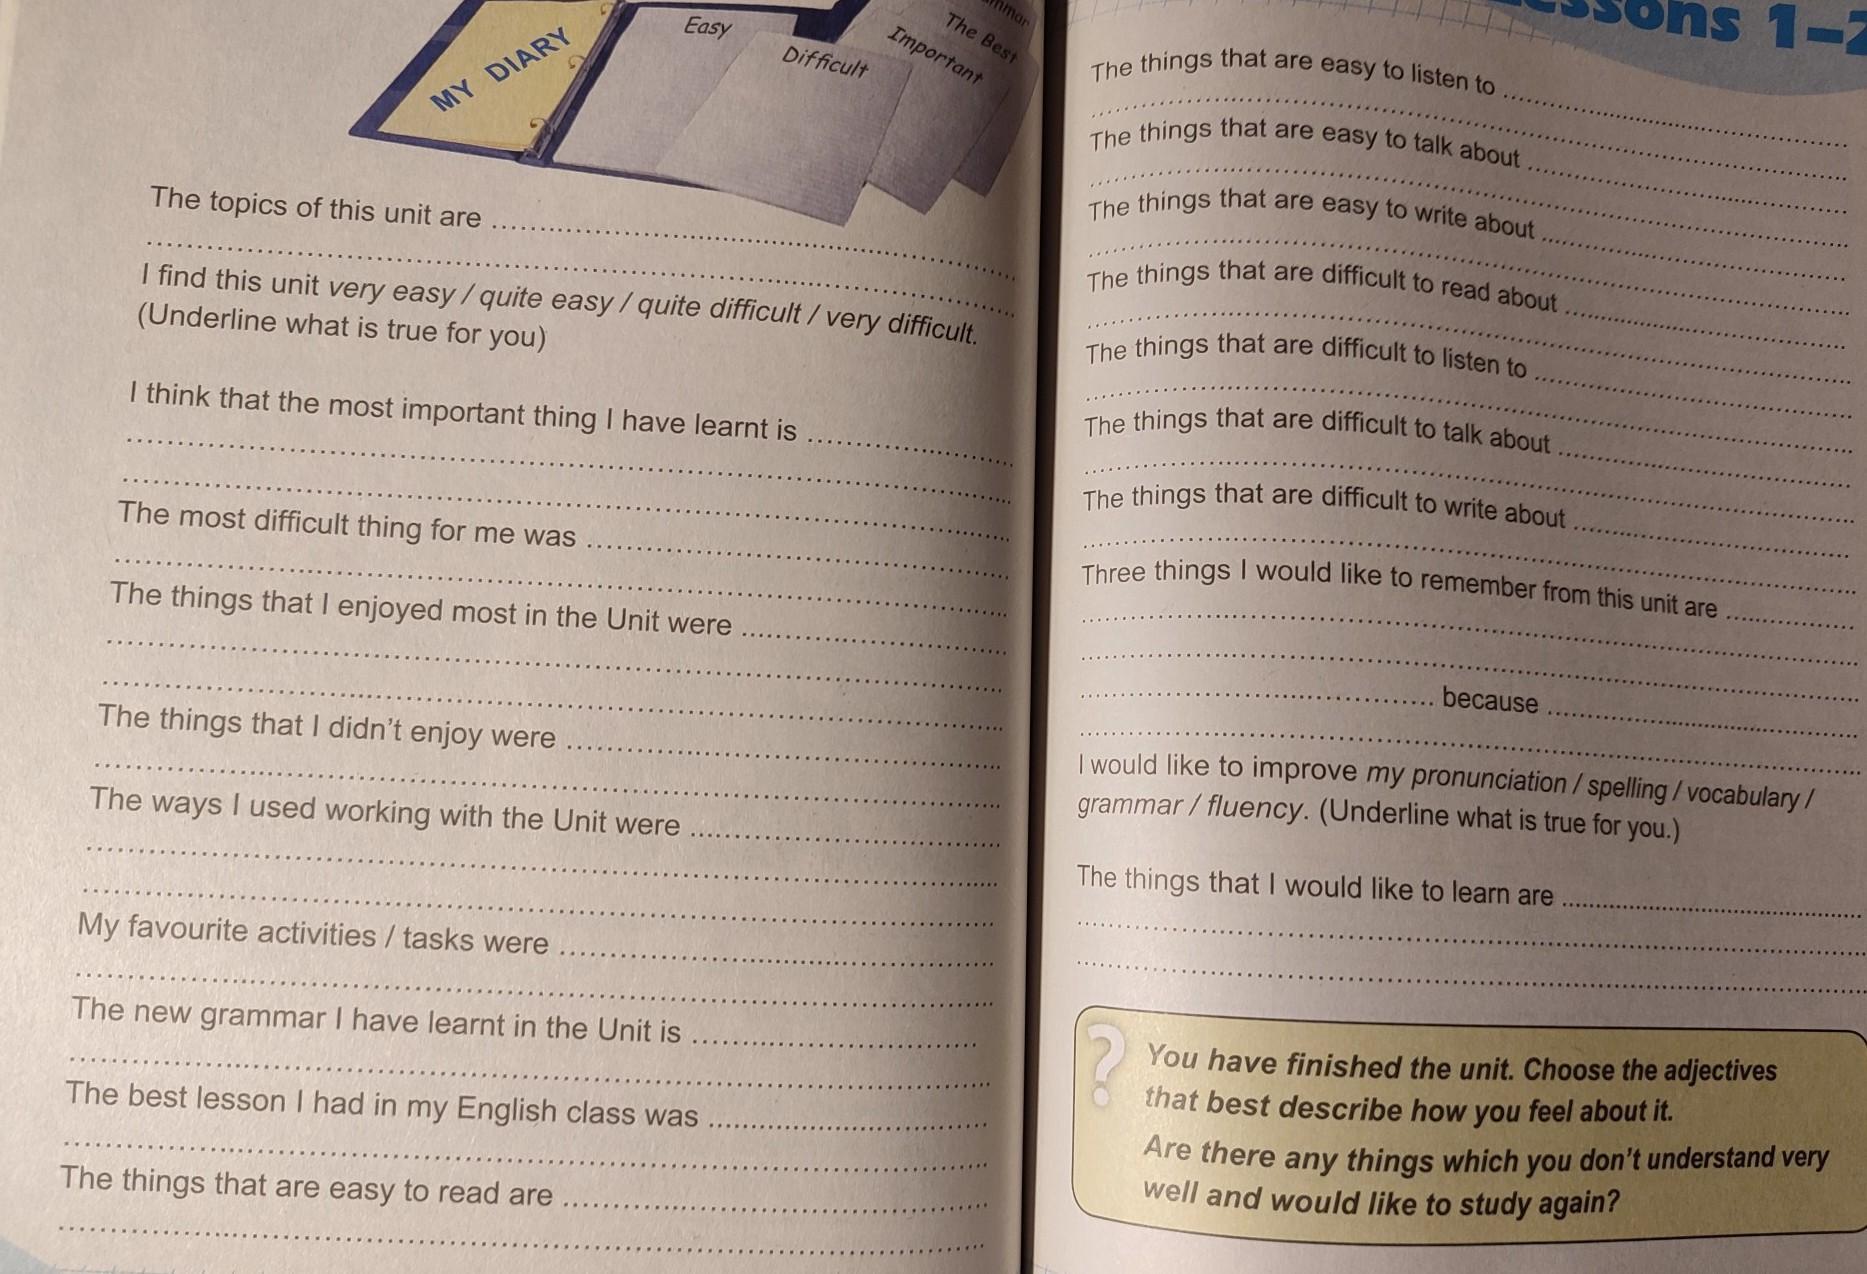 MY DIARY
Easy
Difficult
Important
The Best
The topics of this unit are
I find this unit very easy / quite easy / quite difficult / very difficult.
(Underline what is true for you)
I think that the most important thing I have learnt is
The most difficult thing for me was
The things that I enjoyed most in the Unit were
The things that I didn't enjoy were
The ways I used working with the Unit were
My favourite activities / tasks were
The new grammar I have learnt in the Unit is
The best lesson I had in my English class was
The things that are easy to read are
1–2
The things that are easy to listen to
The things that are easy to talk about
The things that are easy to write about
The things that are difficult to read about
The things that are difficult to listen to
The things that are difficult to talk about
The things that are difficult to write about
Three things I would like to remember from this unit are
because
I would like to improve my pronunciation / spelling / vocabulary /
grammar / fluency. (Underline what is true for you.)
The things that I would like to learn are
?
You have finished the unit. Choose the adjectives
that best describe how you feel about it.
Are there any things which you don't understand very
well and would like to study again?